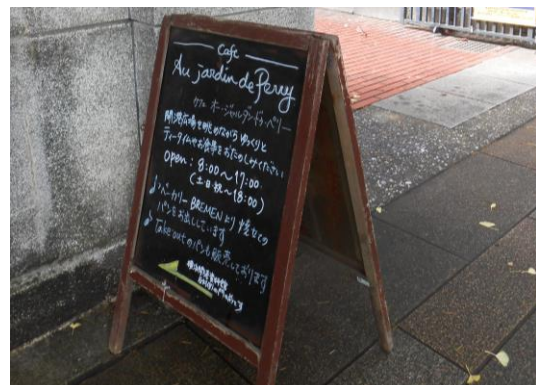 Cafe
Au jardin de Perry
カフェ オー・ジャルダン・ドゥ・ペリー
開港広場を眺めながら ゆっくりと
ティータイムやお食事をおたのしみください
Open : 8:00〜17:00
(土・日・祝〜18:00)
♪ベーカリー BREMEN より 焼きたての
パンをお出ししています
♪Take outのパンも販売しております